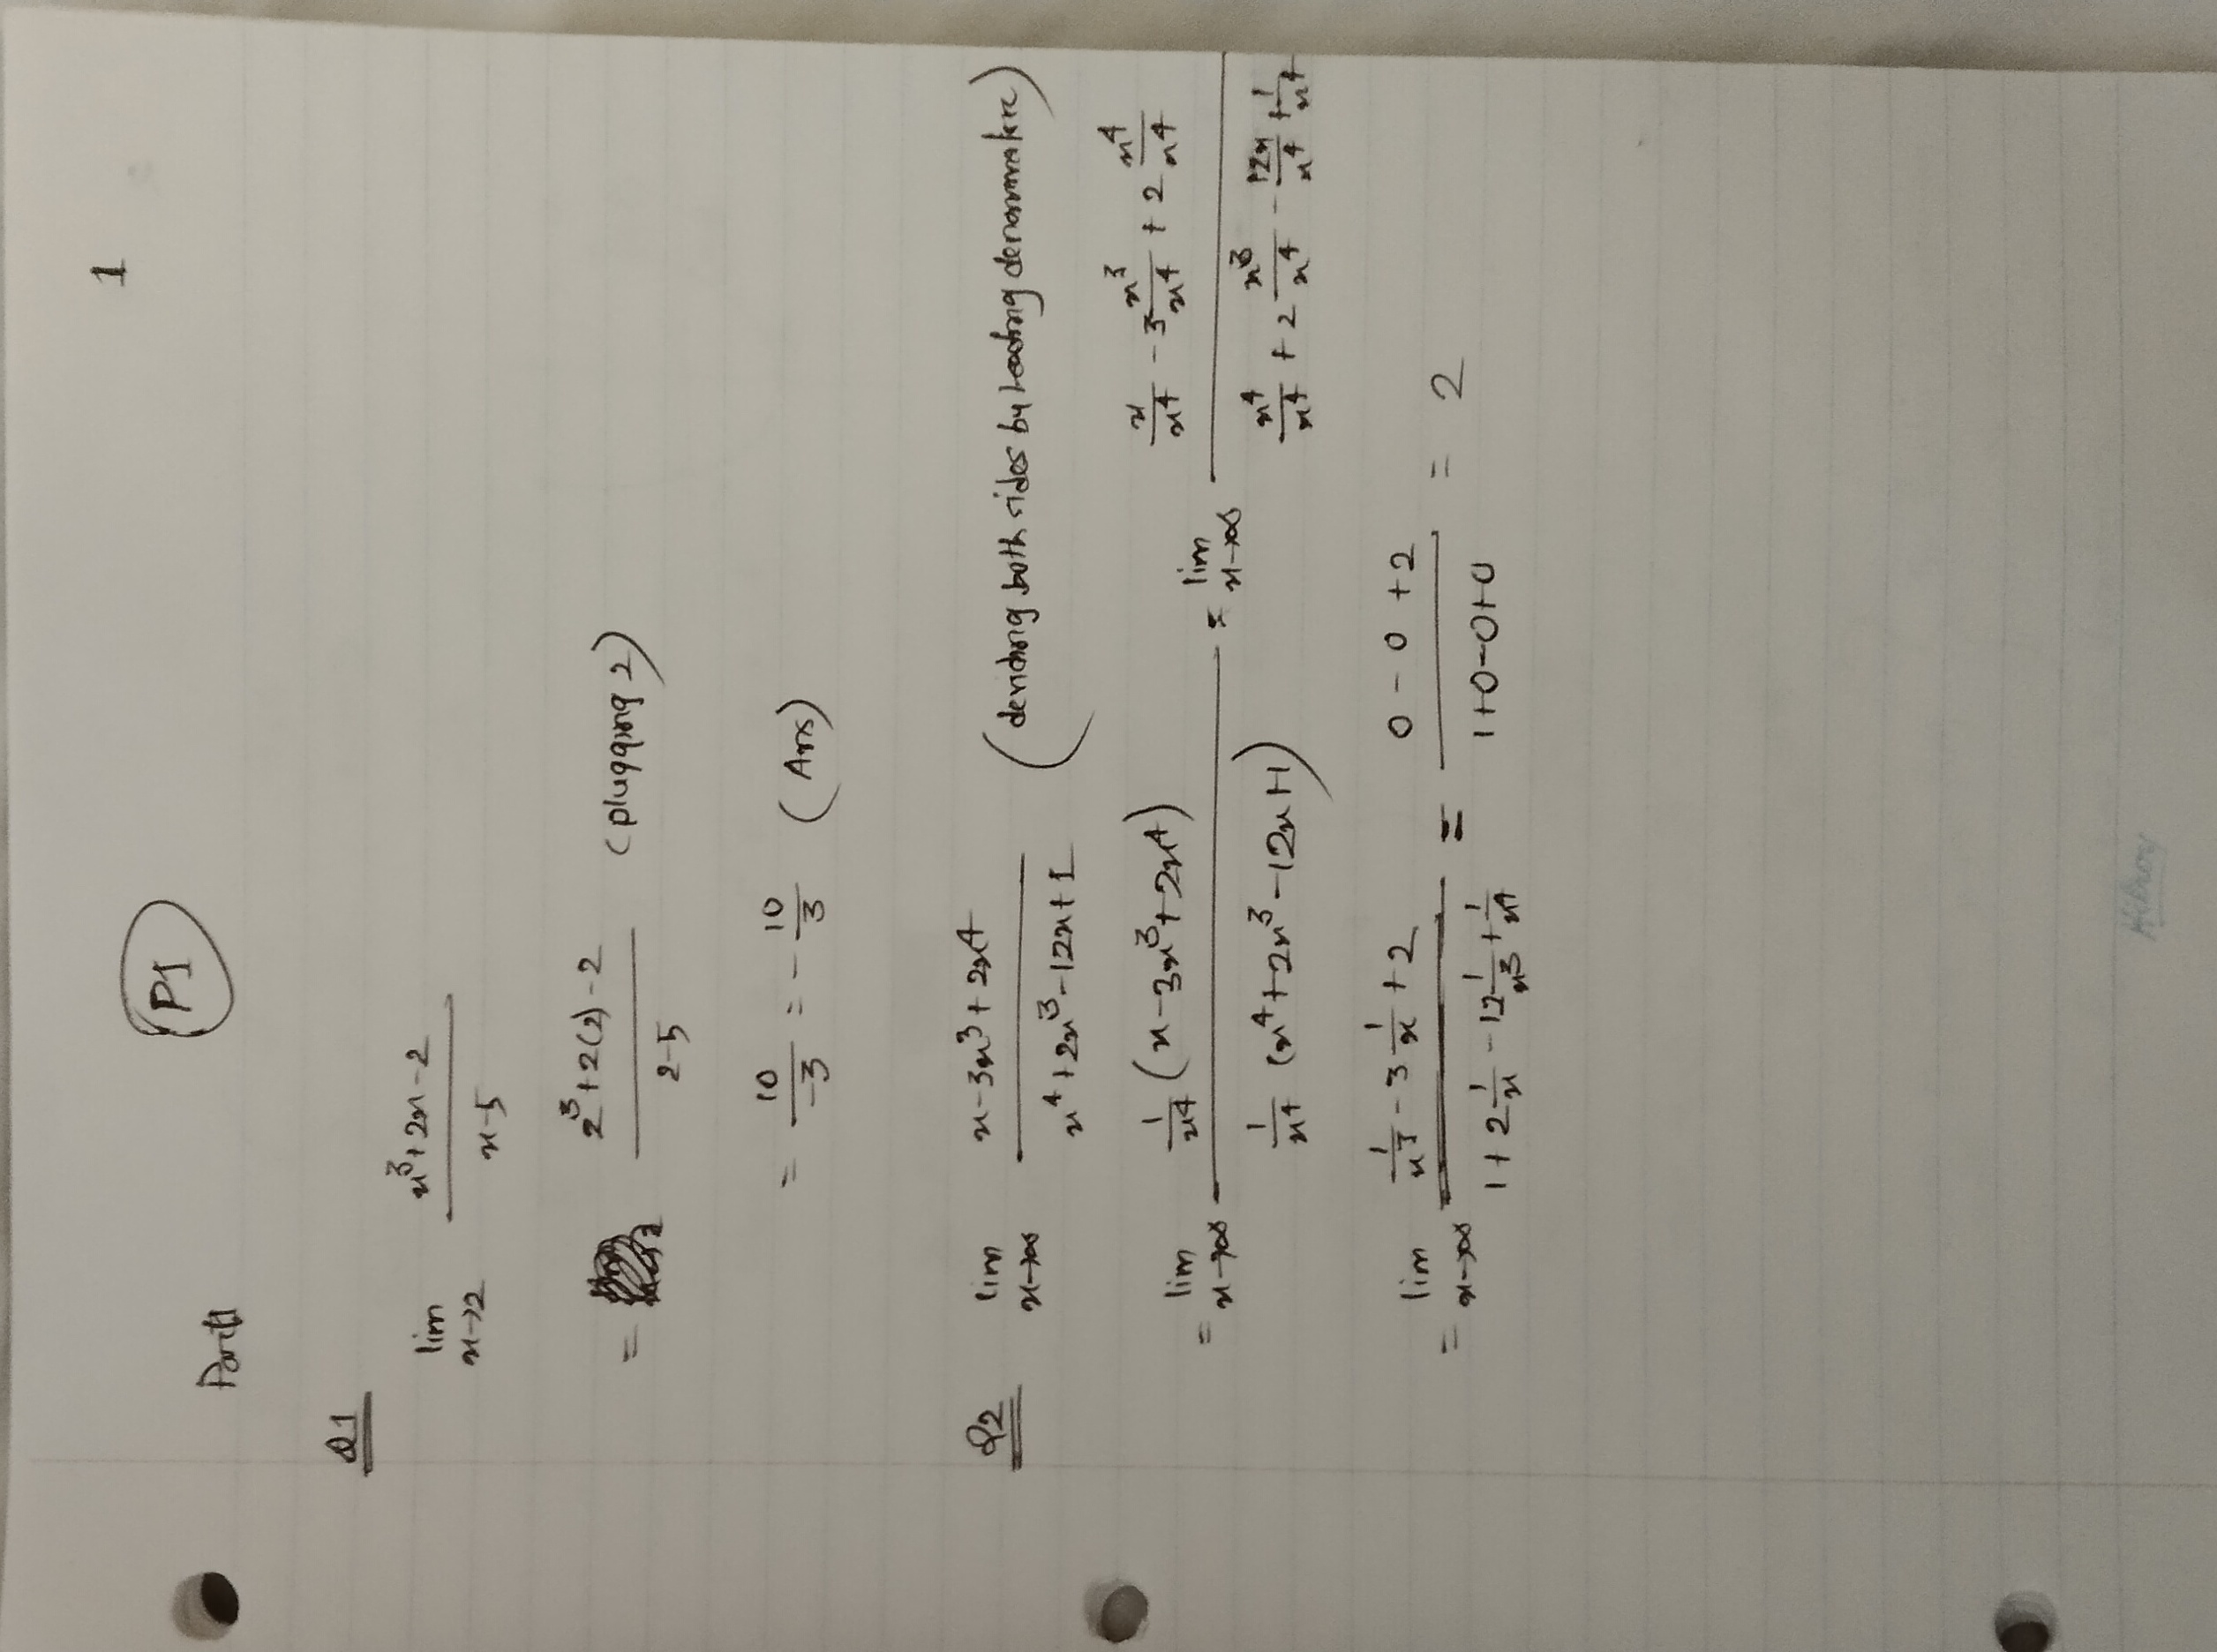 1
P1
Part1
Q1
lim x→2 (x³+2x-2)/(x-5)
= (2³+2(2)-2)/(2-5) (plugging 2)
= 10/-3 = -10/3 (Ans)
Q2 lim x→∞ (x-3x³+2x⁴)/(x⁴+2x³-12x+1) (deviding both sides by leading denominator)
= lim x→∞ (1/x⁴ (x-3x³+2x⁴))/(1/x⁴ (x⁴+2x³-12x+1)) = lim x→∞ (x/x⁴ - 3 x³/x⁴ + 2 x⁴/x⁴)/(x⁴/x⁴ + 2 x³/x⁴ - 12x/x⁴ + 1/x⁴)
= lim x→∞ (1/x³ - 3 1/x + 2)/(1 + 2 1/x - 12 1/x³ + 1/x⁴) = (0-0+2)/(1+0-0+0) = 2
Hilroy